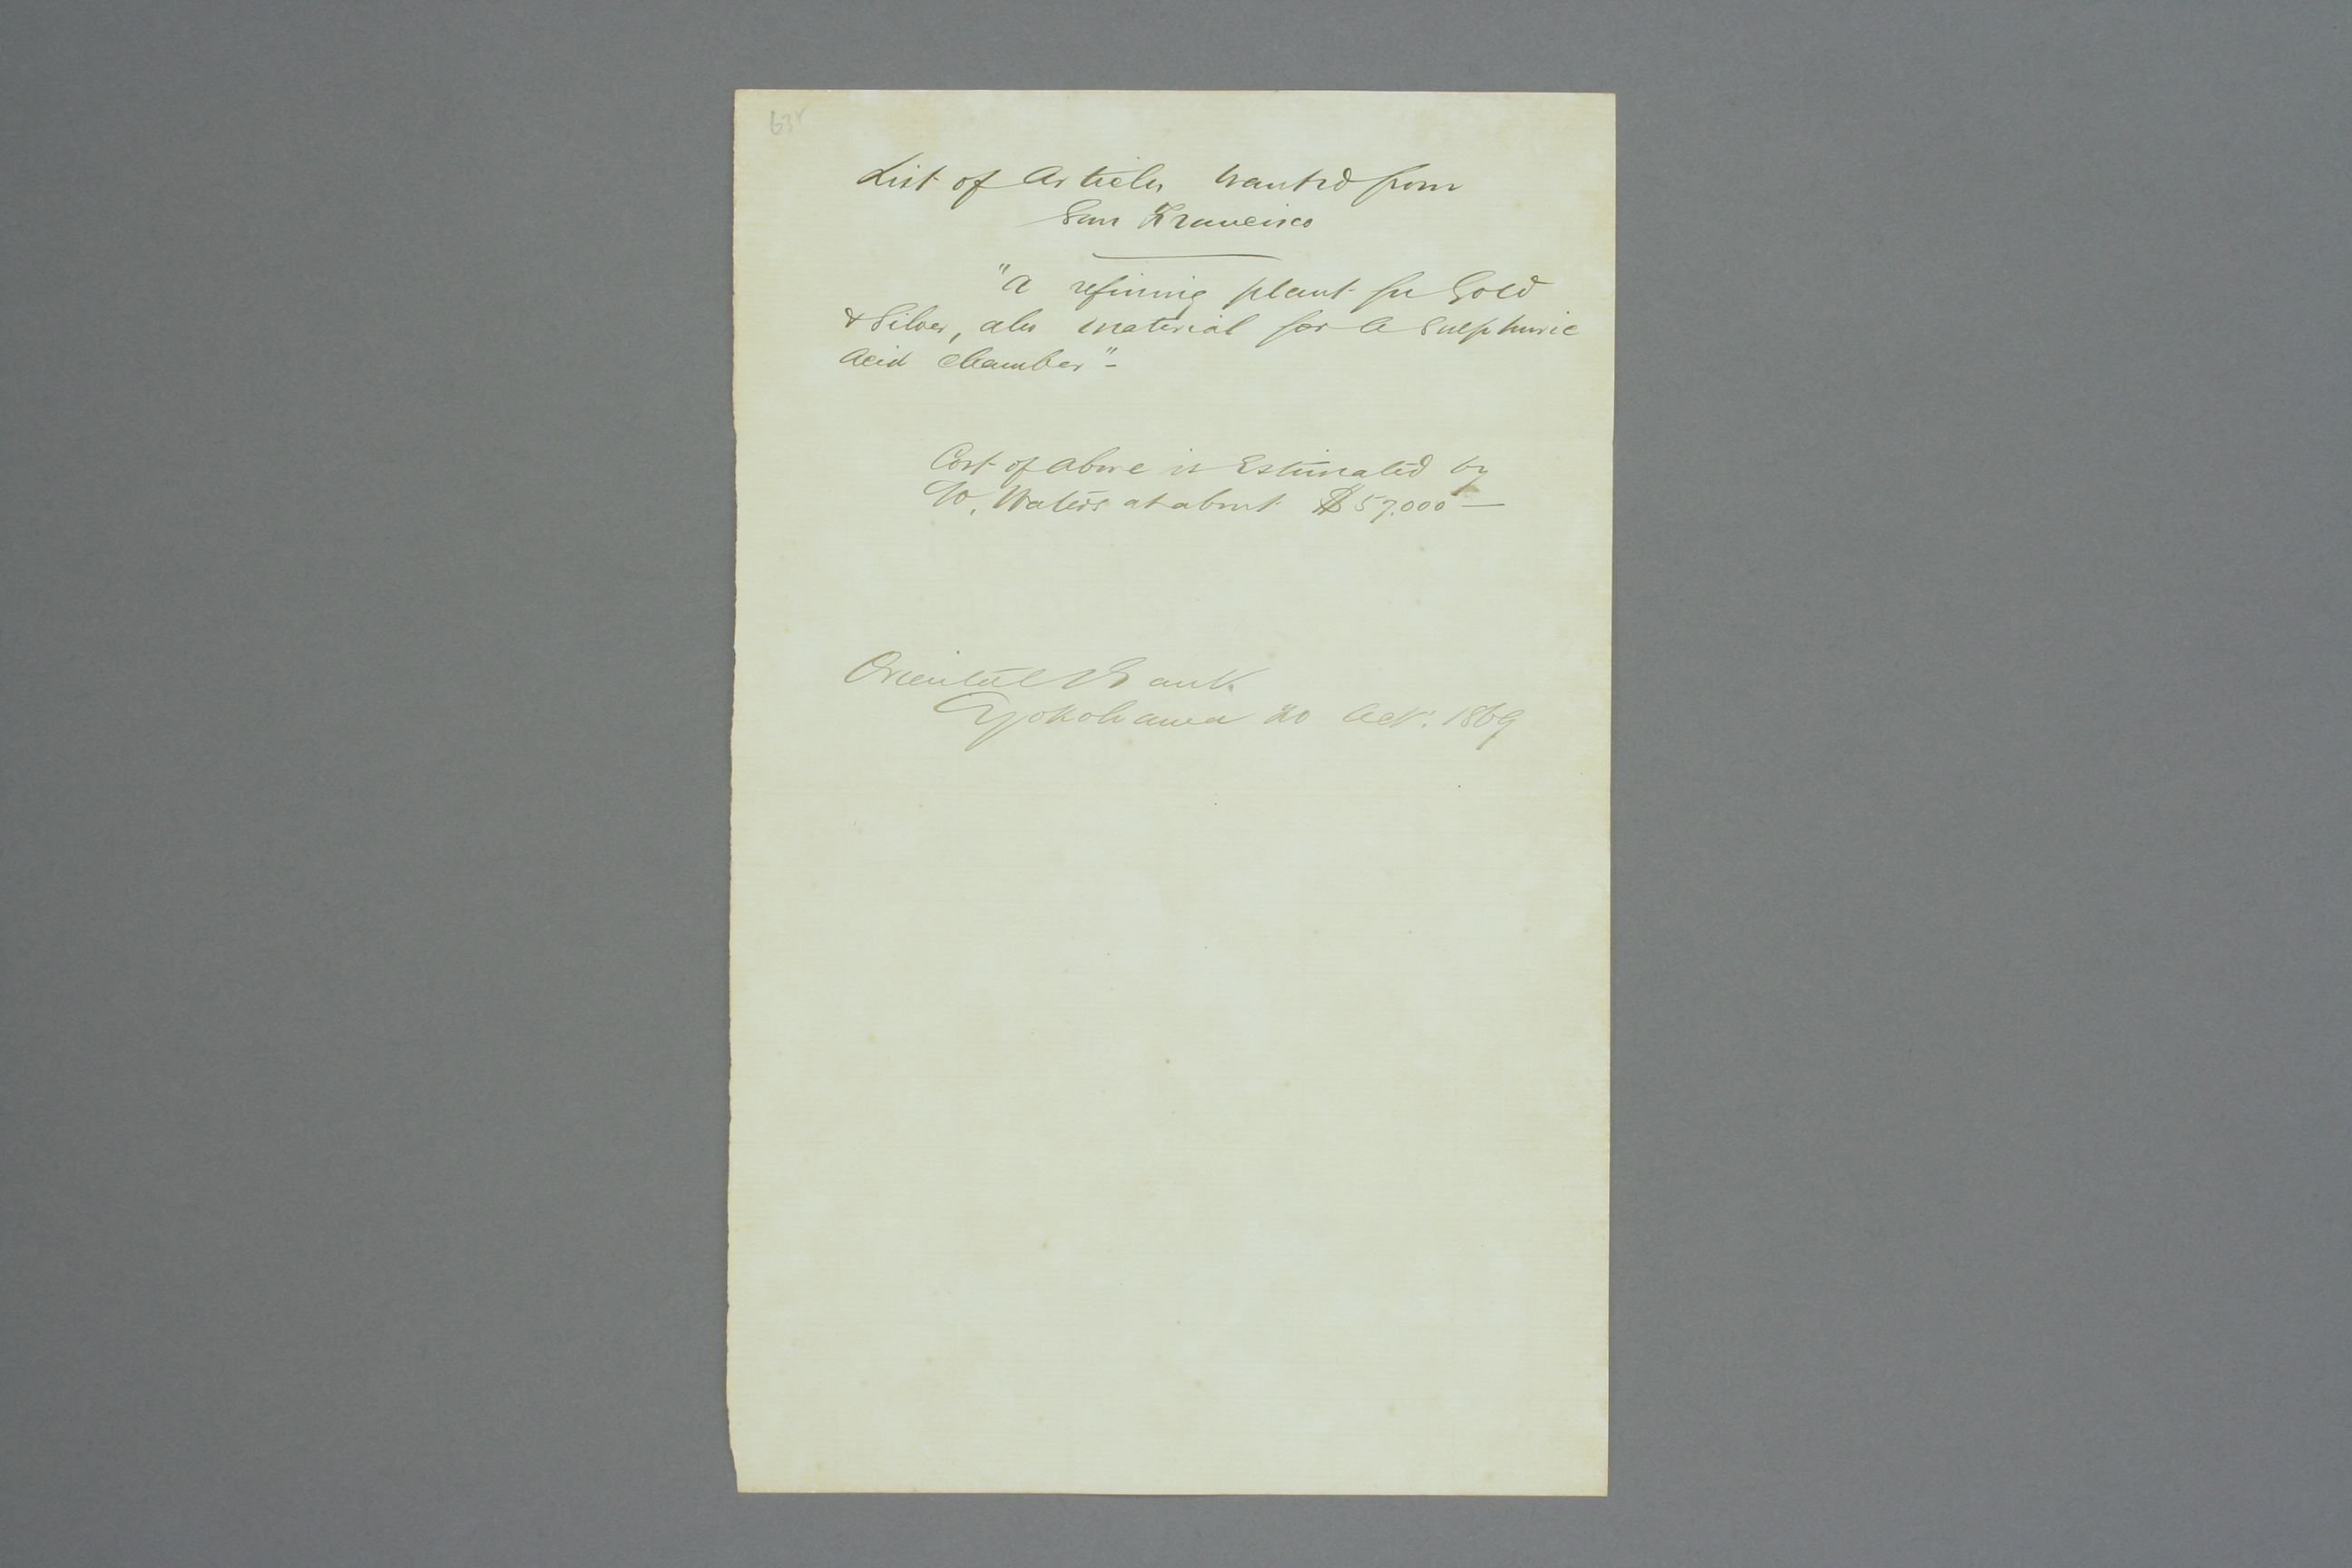 63r
List of Articles Wanted from
San Francisco
"A refining plant for Gold
& Silver, also material for a Sulphuric
Acid Chamber"-
Cost of above is Estimated by
W. Waters at about $57.000 —
Oriental Bank
Yokohama 20 Oct. 1869